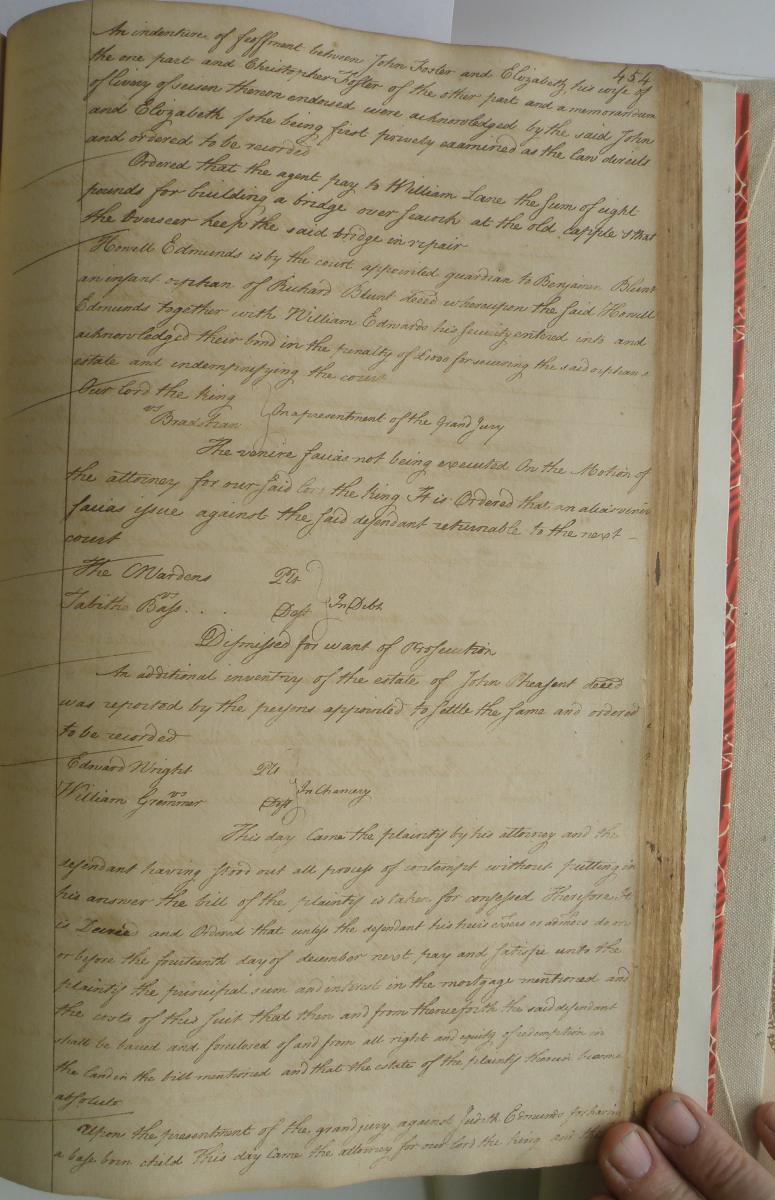 454
An indenture of feoffment between John Foster and Elizabeth his wife of
the one part and Christopher Foster of the other part and a memorandum
of livery of seisen thereon endorsed were acknowledged by the said John
and Elizabeth she being first prively examined as the law directs
and ordered to be recorded
Ordered that the agent pay to William Lane the sum of eight
pounds for building a bridge over seacock at the old & that
the Overseer keep the said bridge in repair
Howell Edmunds is by the court appointed guardian to Benjamin Blunt
an infant orphan of Richard Blunt deced whereupon the said Howell
Edmunds together with William Edwards his security entered into and
acknowledged their bond in the penalty of for securing the said orphans
estate and indempnifying the court
Our lord the King
vs
Bradshaw
On a presentment of the Grand Jury
The venire facias not being executed On the Motion of
the attorney for our said lord the King It is Ordered that an alias venire
facias issue against the said defendant returnable to the next
court
The Wardens Plt
vs
Tabitha Bass . . . Deft In Debt
Dismissed for want of Prosecution
An additional inventry of the estate of John Pheasent deced
was reported by the persons appointed to settle the same and ordered
to be recorded
Edward Wright Plt
vs In Chancery
William Gremmer Deft
This day Came the plaintif by his attorney and the
defendant having stood out all process of contempt without putting in
his answer the bill of the plaintif is taken for confessed Therefore It
is Decreed and Ordered that unless the defendant his heirs or admors do on
or before the fourteenth day of december next pay and satisfie unto the
plaintif the principal sum and interest in the mortgage mentioned and
the costs of this suit that then and from thenceforth the said defendant
shall be barred and foreclosed of and from all right and equity of redemption in
the land in the bill mentioned and that the estate of the plaintif therein become
absolute
Upon the presentment of the grand jury against Judith Edmunds for having
a base born child This day Came the attorney for our lord the King and the